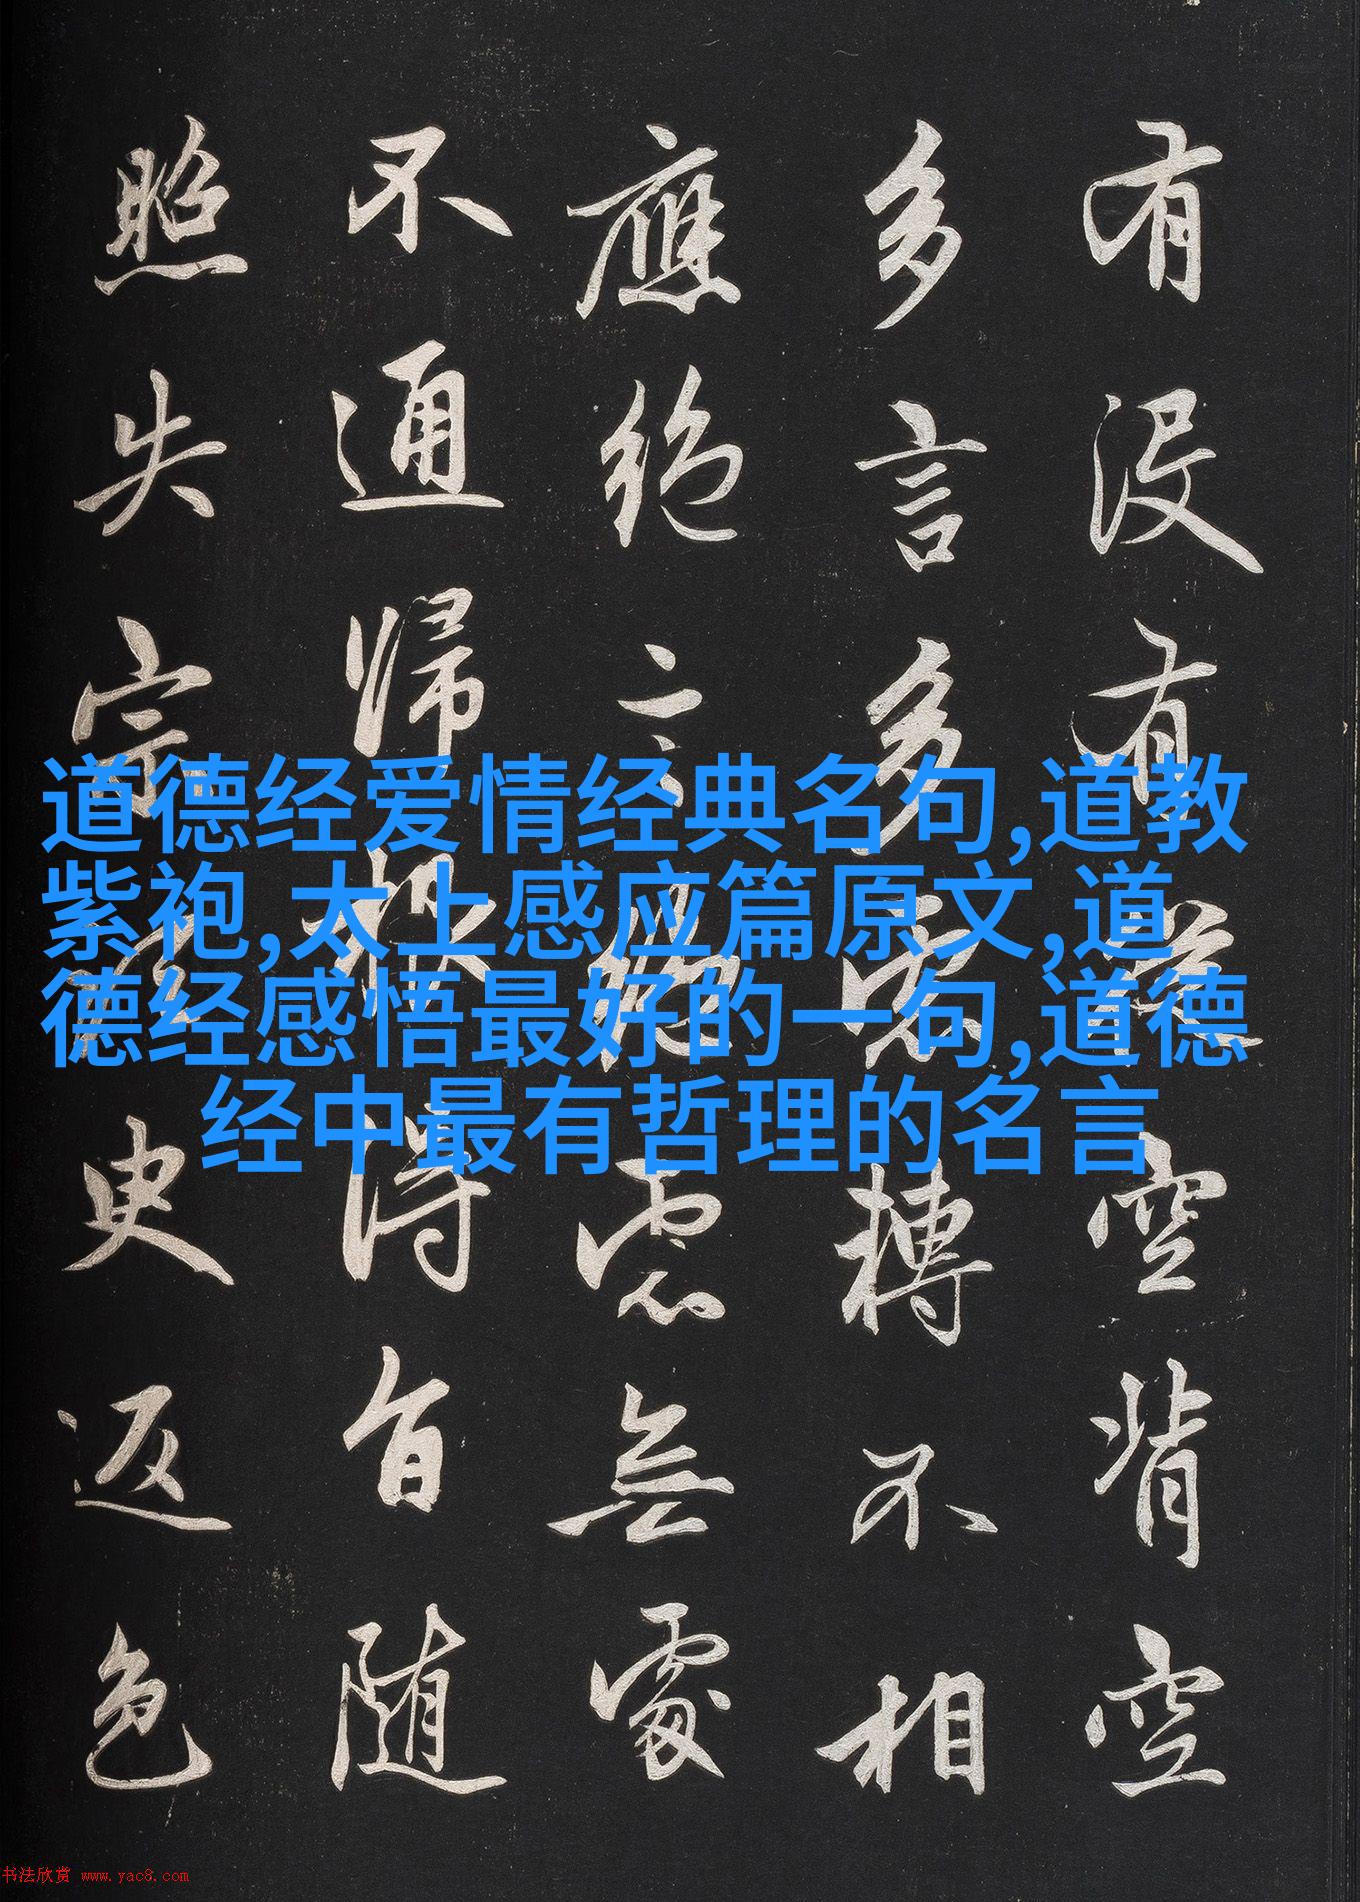 有没有從空背空
多言多慮轉不相
應絕言絕慮無處
不通歸根得旨随
照失宗須臾返色
道德经爱情经典名句,道教
紫袍,太上感应篇原文,道
德经感悟最好的一句,道德
经中最有哲理的名言
书法欣赏 www.yac8.com